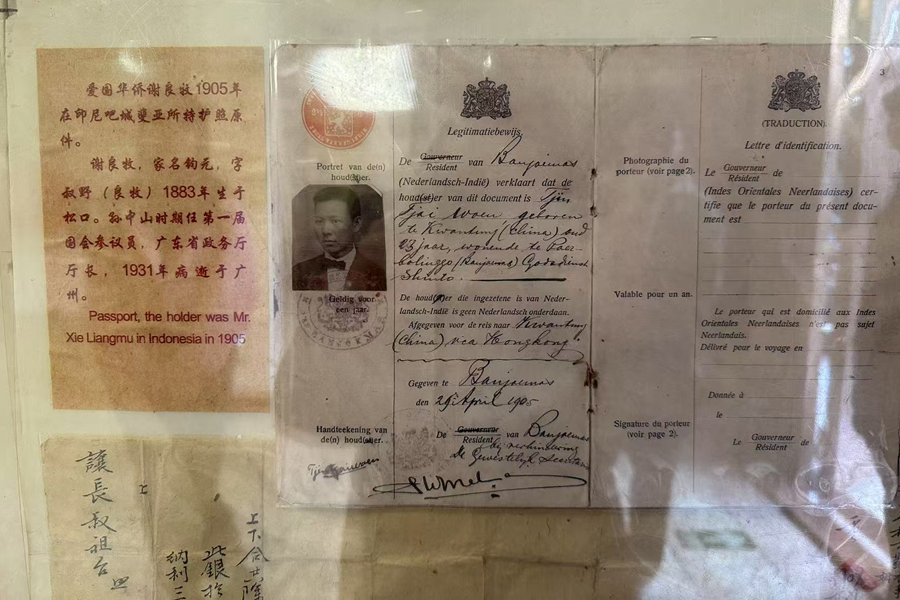 爱国华侨谢良牧1905年
在印尼吧城斐亚所持护照原
件。
谢良牧,家名钧元,字
叔野(良牧)1883年生于
松口。孙中山时期任第一届
国会参议员,广东省政务厅
厅长,1931年病逝于广
州。
Passport, the holder was Mr.
Xie Liangmu in Indonesia in 1905
Portret van de(n)
houd(st)er.
Geldig voor
een jaar.
Handteekening van
de(n) houd(st)er.
Legitimatiebewijs.
De Gouverneur van Banjoemas
Resident
(Nederlandsch-Indië) verklaart dat de
houd(st)er van dit document is Tjin
Tjai Woen, geboren
te Kwantung (China) oud
23 jaar, wonende te Poer-
bolinggo (Banjoemas) Godsdienst
Shinto.
De houd(st)er die ingezetene is van Neder-
landsch-Indië is geen Nederlandsch onderdaan.
Afgegeven voor de reis naar Kwantung
(China) via Hongkong
Gegeven te Banjoemas
den 29 April 1905
De Gouverneur van Banjoemas
Resident
bij verhindering
De Gewestelijk Secretaris
Photographie du
porteur (voir page 2).
Valable pour en an.
Signature du porteur
(voir page 2).
3
(TRADUCTION).
Lettre d'identification.
Le Gouverneur de
Résident
(Indes Orientales Neerlandaises) cer-
tifie que le porteur du présent docu-
ment est
Le porteur qui est domicilié aux Indes
Orientales Neerlandaises n'est pas sujet
Neerlandais.
Délivré pour le voyage en
Donnée à
le
Le Gouverneur de
Résident
讓長叔祖台
上下合共除
此銀拾
納利三